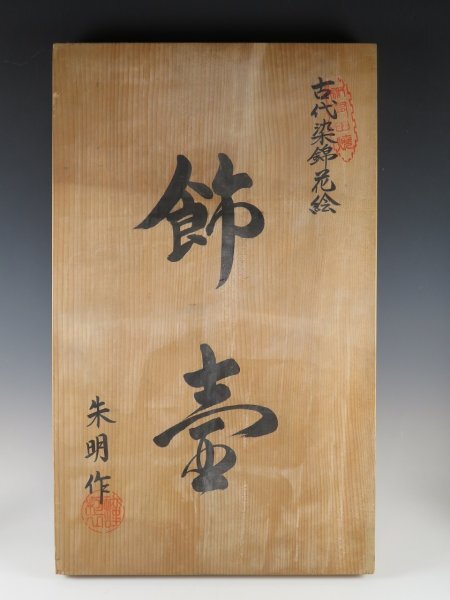 古代染錦花絵
飾壷
朱明作